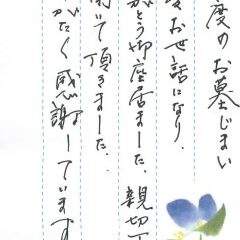 度のお墓じまい
お世話になり
がとう御座居ました。親切丁
頂いて頂きました。
がたく感謝しています